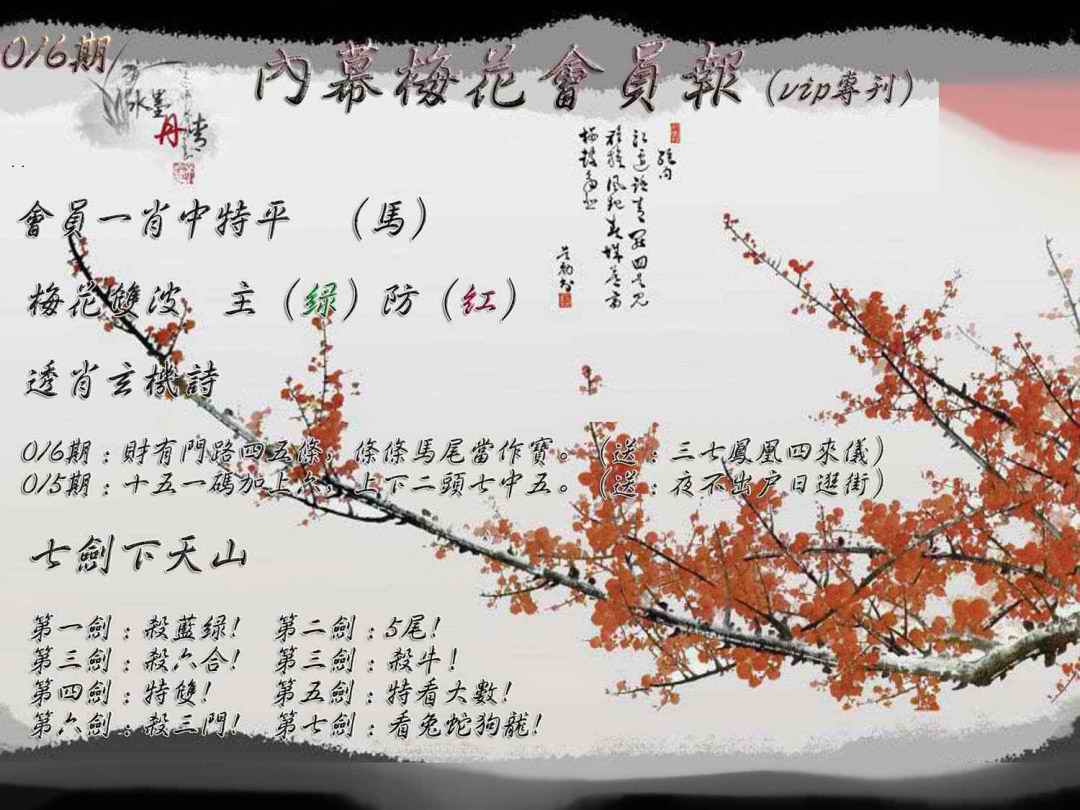 016期
內幕梅花會員報(vip專刊)
水墨
丹青
會員一肖中特平 (馬)
梅花雙波 主(绿)防(红)
透肖玄機詩
016期:財有門路四五條,條條馬尾當作寶。(送:三七鳳凰四來儀)
015期:十五一碼加上六,上下二頭七中五。(送:夜不出户日逛街)
七劍下天山
第一劍:殺藍绿! 第二劍:5尾!
第三劍:殺六合! 第三劍:殺牛!
第四劍:特雙! 第五劍:特看大數!
第六劍:殺三門! 第七劍:看兔蛇狗龍!